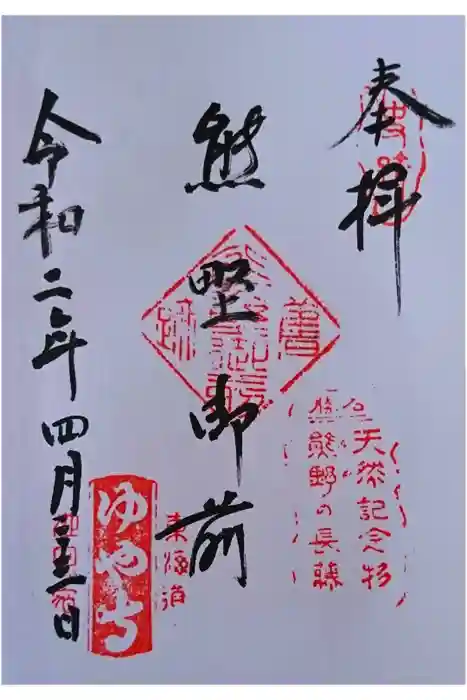 奉拝
天然記念物
熊野の長藤
熊野御前
舊跡
東海道
ゆや寺
令和二年四月
日